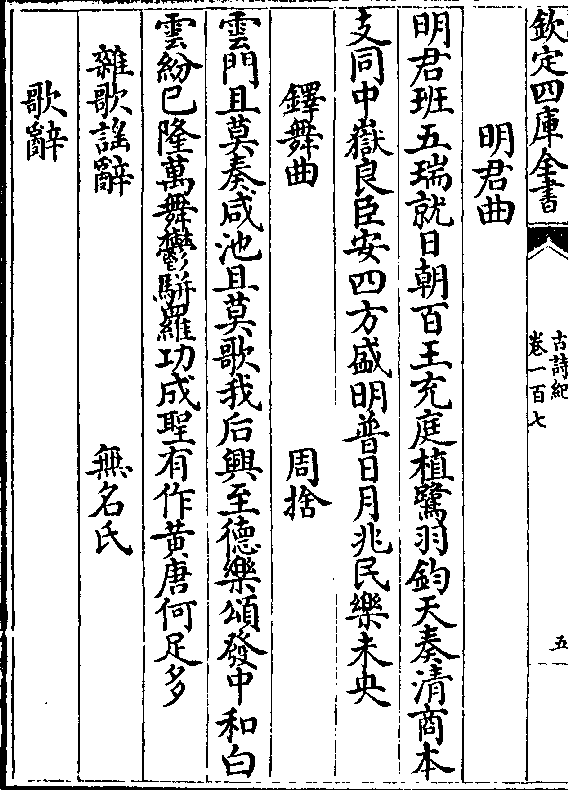 欽定四庫全書
古詩紀
卷一百七
五
明君曲
明君班五瑞就日朝百王充庭植鷺羽鈞天奏清商本
支同中嶽良臣安四方盛明普日月兆民樂未央
鐸舞曲 周捨
雲門且莫奏咸池且莫歌我后興至德樂頌發中和白
雲紛已隆萬舞鬱駢羅功成聖有作黄唐何足多
雜歌謡辭 無名氏
歌辭